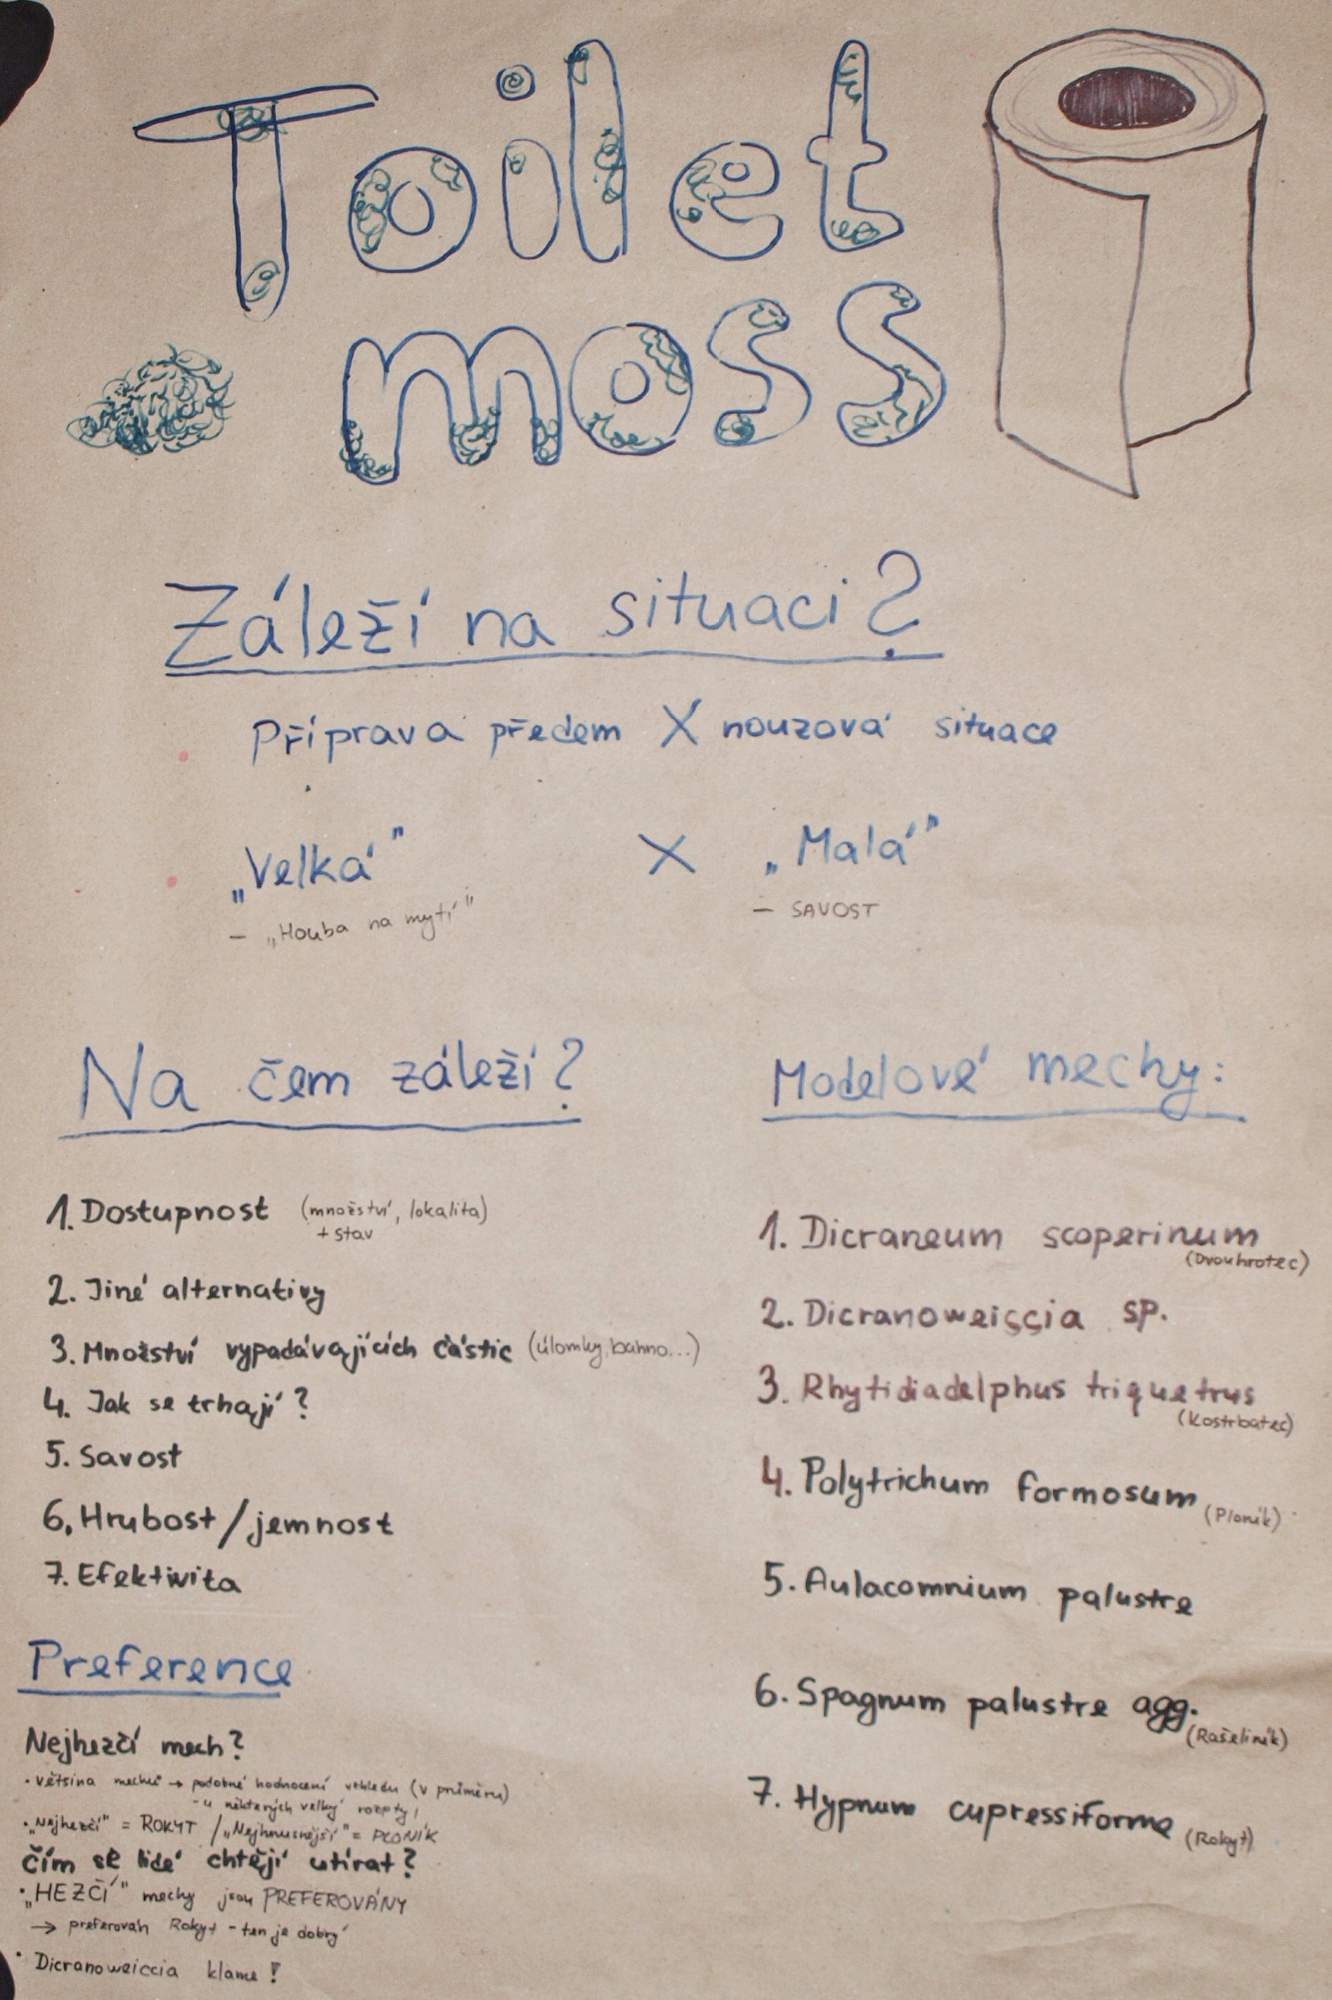 Toilet
moss
Záleží na situaci?
Příprava předem X nouzová situace
„Velká" X „Malá"
– „Houba na mytí" – SAVOST
Na čem záleží?
1. Dostupnost (množství, lokalita)
+ stav
2. Jiné alternativy
3. Množství vypadávajících částic (úlomky, bahno...)
4. Jak se trhají?
5. Savost
6. Hrubost/jemnost
7. Efektivita
Modelové mechy:
1. Dicraneum scoperinum
(Dvouhrotec)
2. Dicranoweisscia sp.
3. Rhytidiadelphus triquetrus
(Kostrbatec)
4. Polytrichum formosum (Ploník)
5. Aulacomnium palustre
6. Spagnum palustre agg.
(Rašeliník)
7. Hypnum cupressiforme (Rokyt)
Preference
Nejhezčí mech?
• většina mechů → podobné hodnocení vzhledu (v průměru)
- u některých velký rozptyl
• „Nejhezčí" = ROKYT / „Nejhnusnější" = PLONÍK
Čím se lidé chtějí utírat?
• „HEZČÍ" mechy jsou PREFEROVÁNY
→ preferován Rokyt - ten je dobrý
• Dicranoweiccia klame!